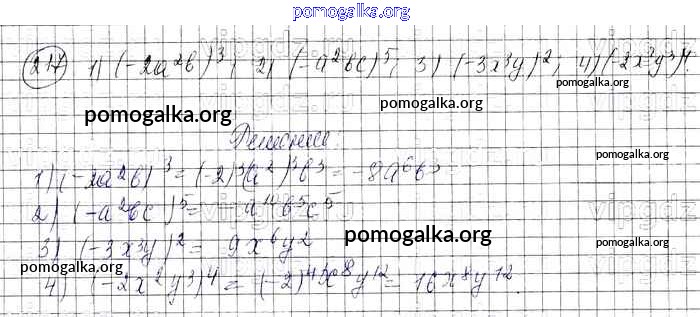 pomogalka.org
217 1) (-2a²b)³; 2) (-a²bc)⁵; 3) (-3x³y)²; 4) (-2x²y³)⁴.
pomogalka.org
pomogalka.org
Решение:
pomogalka.org
1) (-2a²b)³ = (-2)³(a²)³b³ = -8a⁶b³
2) (-a²bc)⁵ = a¹⁰b⁵c⁵
3) (-3x³y)² = 9x⁶y²
pomogalka.org
pomogalka.org
4) (-2x²y³)⁴ = (-2)⁴x⁸y¹² = 16x⁸y¹².